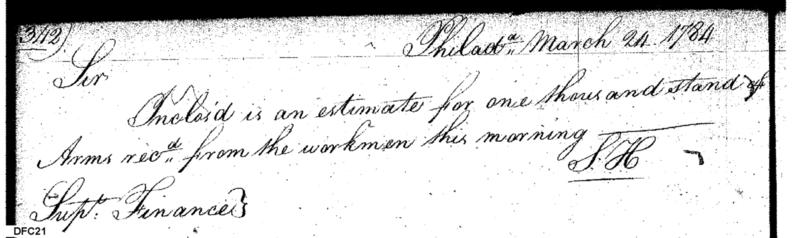 342)
Philada. March 24 1784
Sir
Inclos'd is an estimate for one thousand stand of
Arms recd. from the workmen this morning
S. H
Supt. Finance}
DFC21